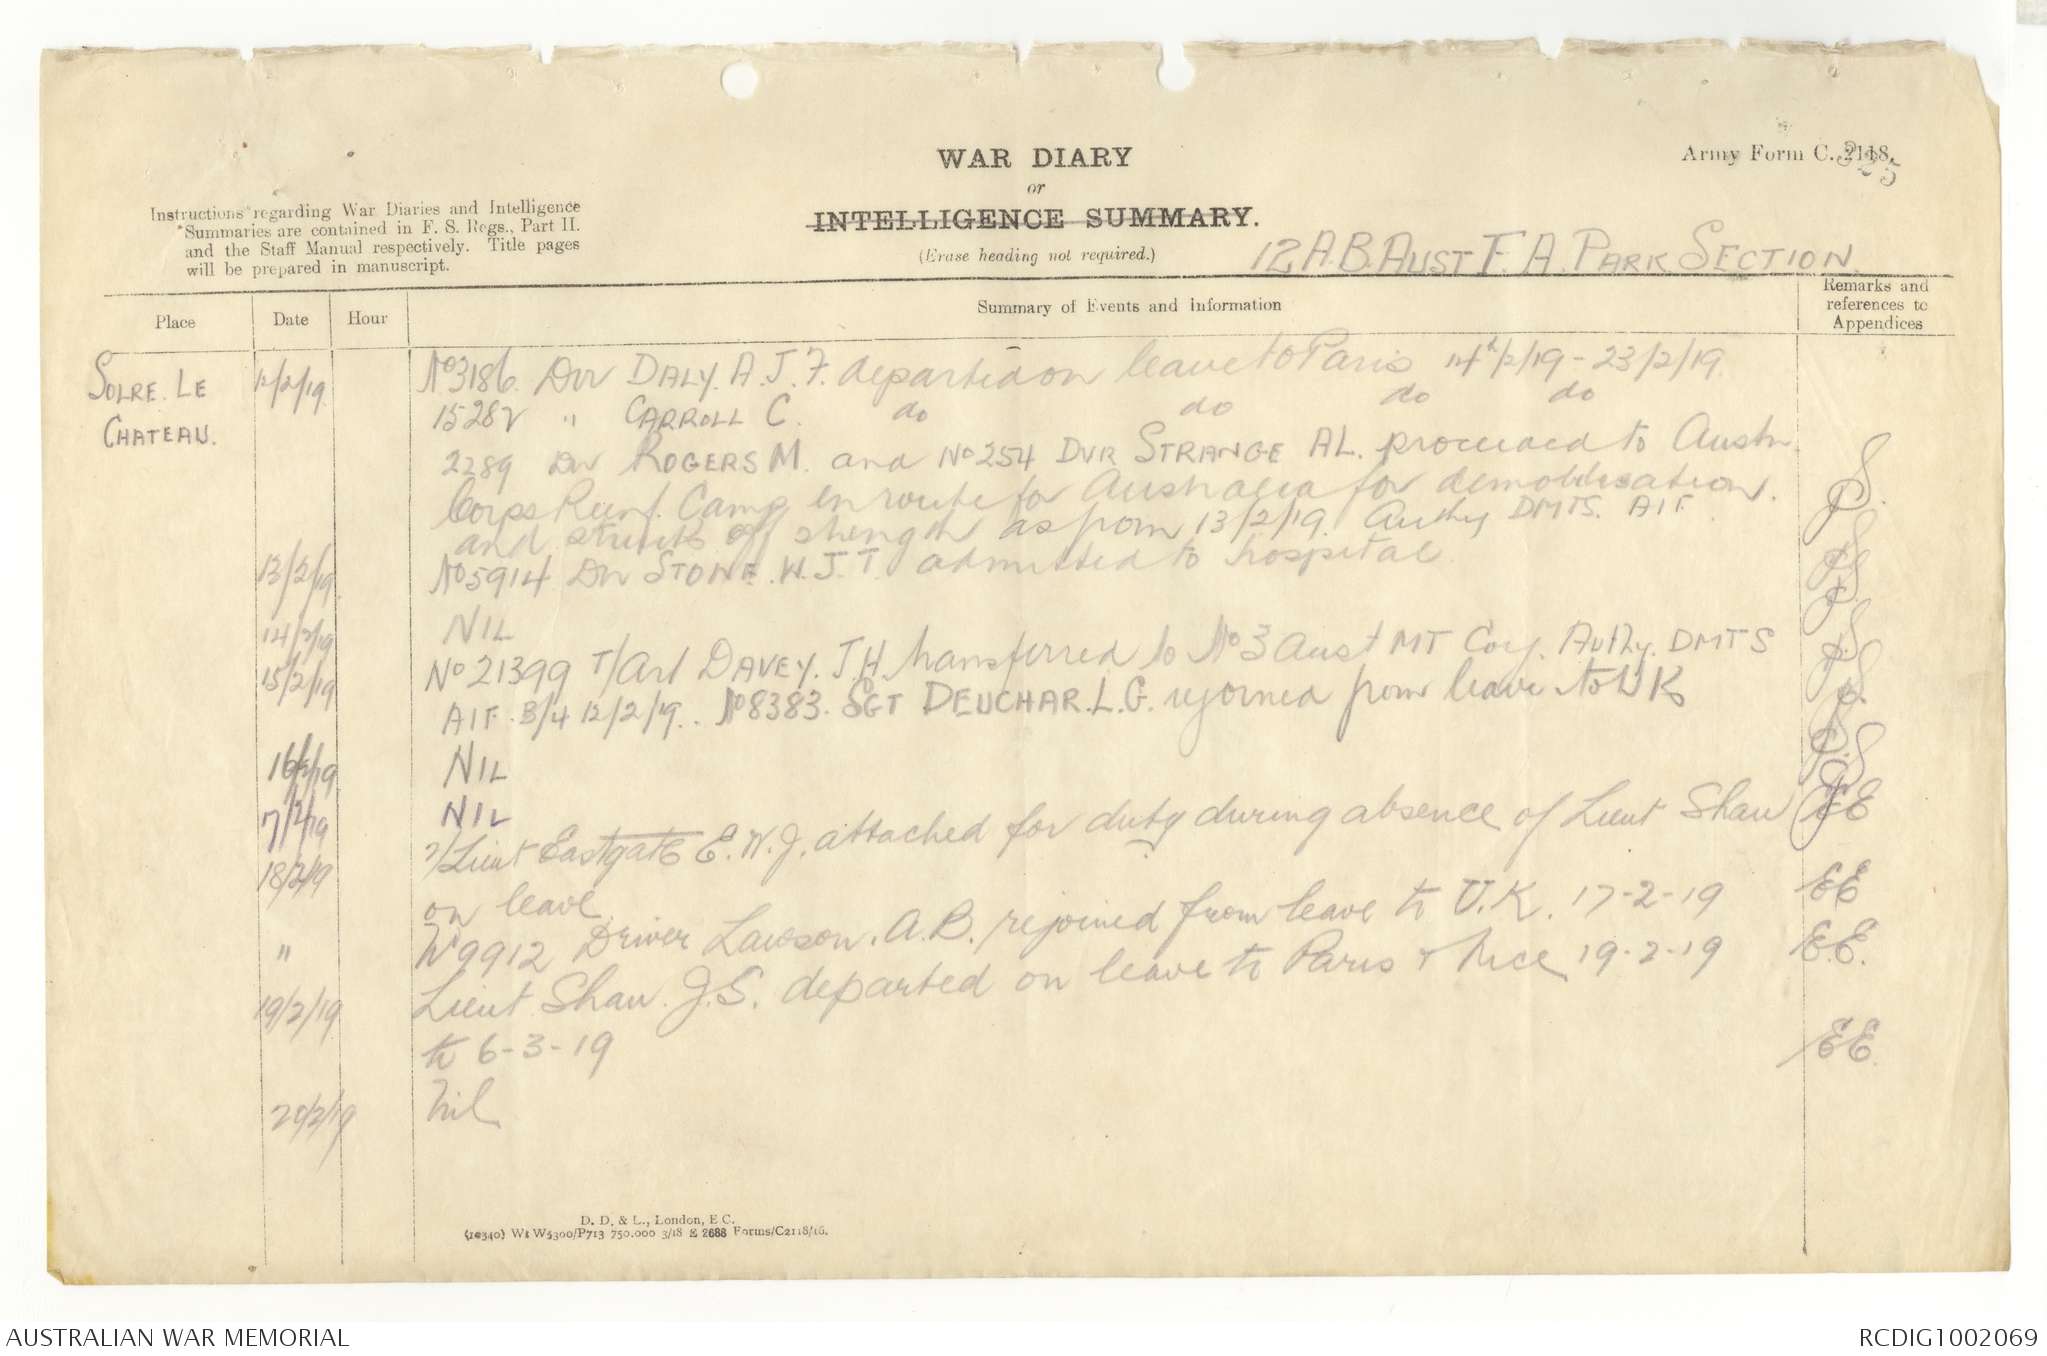 WAR DIARY
or
INTELLIGENCE SUMMARY.
(Erase heading not required.)
Army Form C. 2118.
325
Instructions regarding War Diaries and Intelligence
Summaries are contained in F. S. Regs., Part II.
and the Staff Manual respectively. Title pages
will be prepared in manuscript.
12 A.B. AUST F.A. PARK SECTION.
Place Date Hour Summary of Events and Information Remarks and references to Appendices
SOLRE. LE CHATEAU.
12/2/19 No 3186. Dvr DALY. A. J. F. departed on leave to Paris 14th/2/19 - 23/2/19.
15282 " CARROLL C. do do do do
2289 Dvr ROGERS M. and No 254 DVR STRANGE AL. proceeded to Austn.
Corps Reinf. Camp en route for Australia for demoblisation.
and struck off strength as from 13/2/19. Authy DMTS. AIF
13/2/19 No 5914 Dvr STONE. W. J. T. admitted to hospital
14/2/19 NIL
15/2/19 No 21399 T/Art DAVEY. J.H. transferred to No 3 Aust MT Coy. Authy. DMTS
AIF. B/4 12/2/19. No 8383. SGT DEUCHAR. L. G. rejoined from leave to UK
16/2/19 NIL
17/2/19 NIL
18/2/19 2/Lieut Eastgate E. W. J. attached for duty during absence of Lieut Shaw EE
on leave. EE
" No 9912 Driver Lawson. A. B. rejoined from leave to U.K. 17-2-19 E.E.
19/2/19 Lieut Shaw. J.S. departed on leave to Paris & Nice 19-2-19
to 6-3-19 EE.
20/2/19 Nil
D. D. & L., London, E.C.
(10340) Wt W5300/P713 750.000 3/18 E 2688 Forms/C2118/16.
AUSTRALIAN WAR MEMORIAL
RCDIG1002069